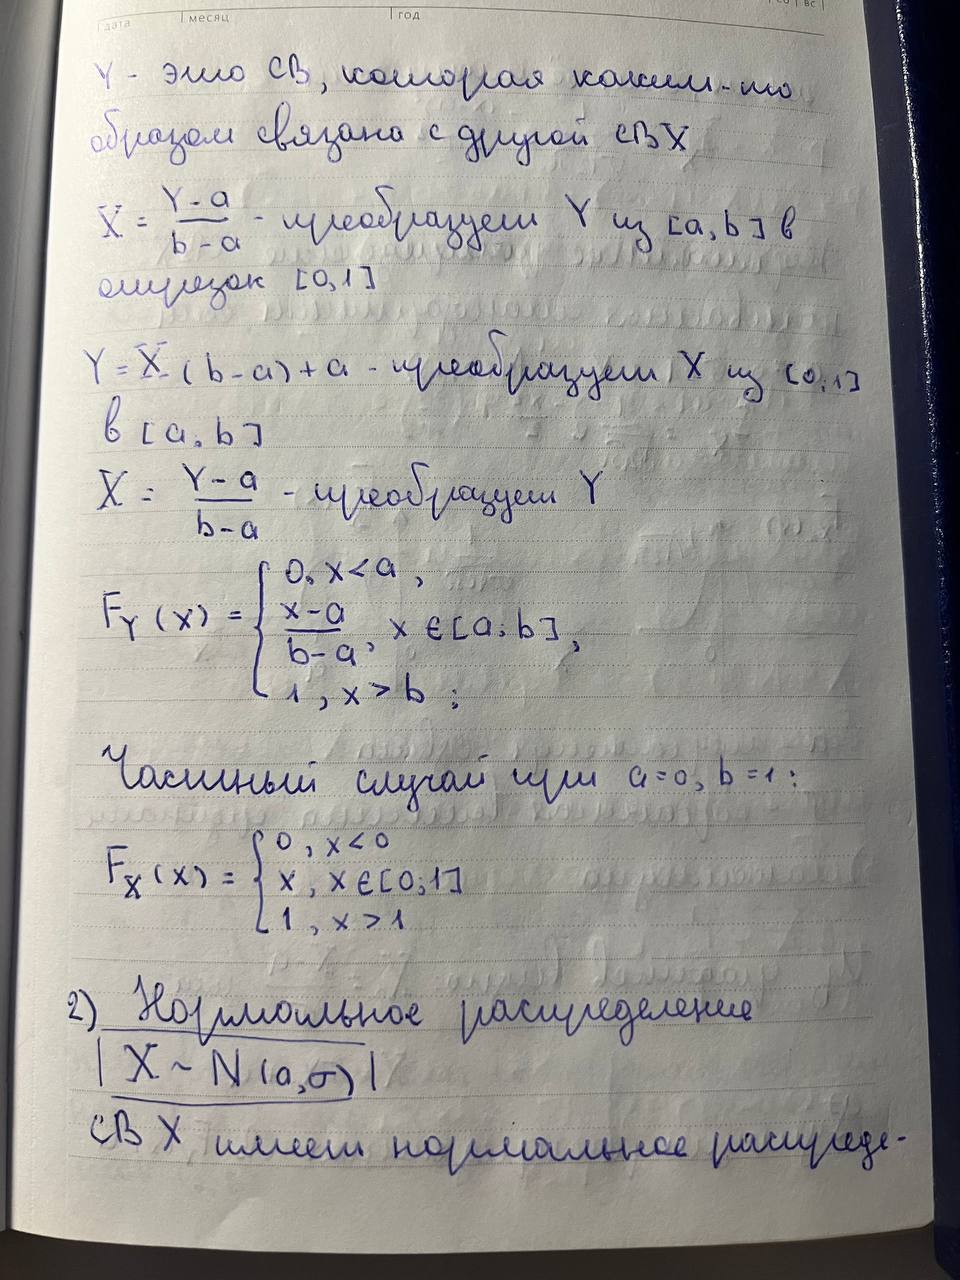 дата месяц год вс
Y - это СВ, которая каким-то
образом связана с другой СВ X
X = (Y - a)/(b - a) - преобразует Y из [a, b] в
отрезок [0,1]
Y = X (b - a) + a - преобразует X из [0,1]
в [a, b]
X = (Y - a)/(b - a) - преобразует Y
F_Y (x) = { 0, x < a,
(x - a)/(b - a), x ∈ [a; b],
1, x > b;
Частный случай при a = 0, b = 1:
F_X (x) = { 0, x < 0
x, x ∈ [0; 1]
1, x > 1
2) Нормальное распределение
| X ~ N (a, σ) |
СВ X имеет нормальное распреде-